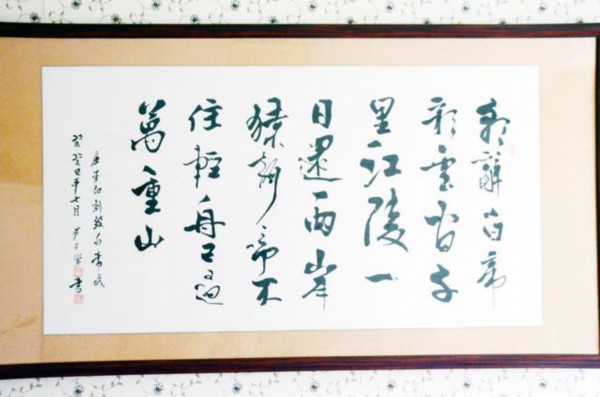 朝辭白帝
彩雲間千
里江陵一
日還兩岸
猿聲啼不
住輕舟已過
萬重山
唐李白
癸巳年七月 書